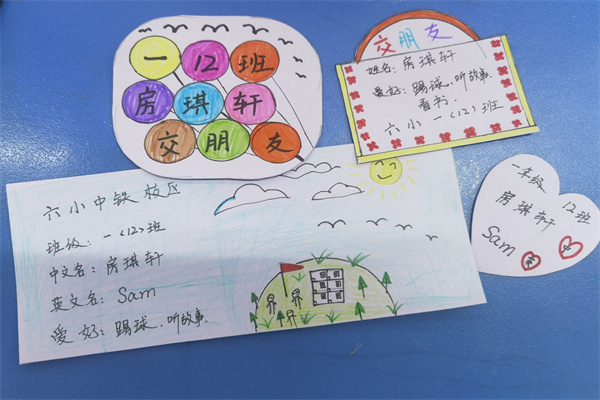 一12班
房琪轩
交朋友
交朋友
姓名：房琪轩
爱好：踢球、听故事、
看书.
六小一〈12〉班
六小中铁校区
班级：一〈12〉班
中文名：房琪轩
英文名：Sam
爱好：踢球、听故事.
一年级 12班
房琪轩
Sam